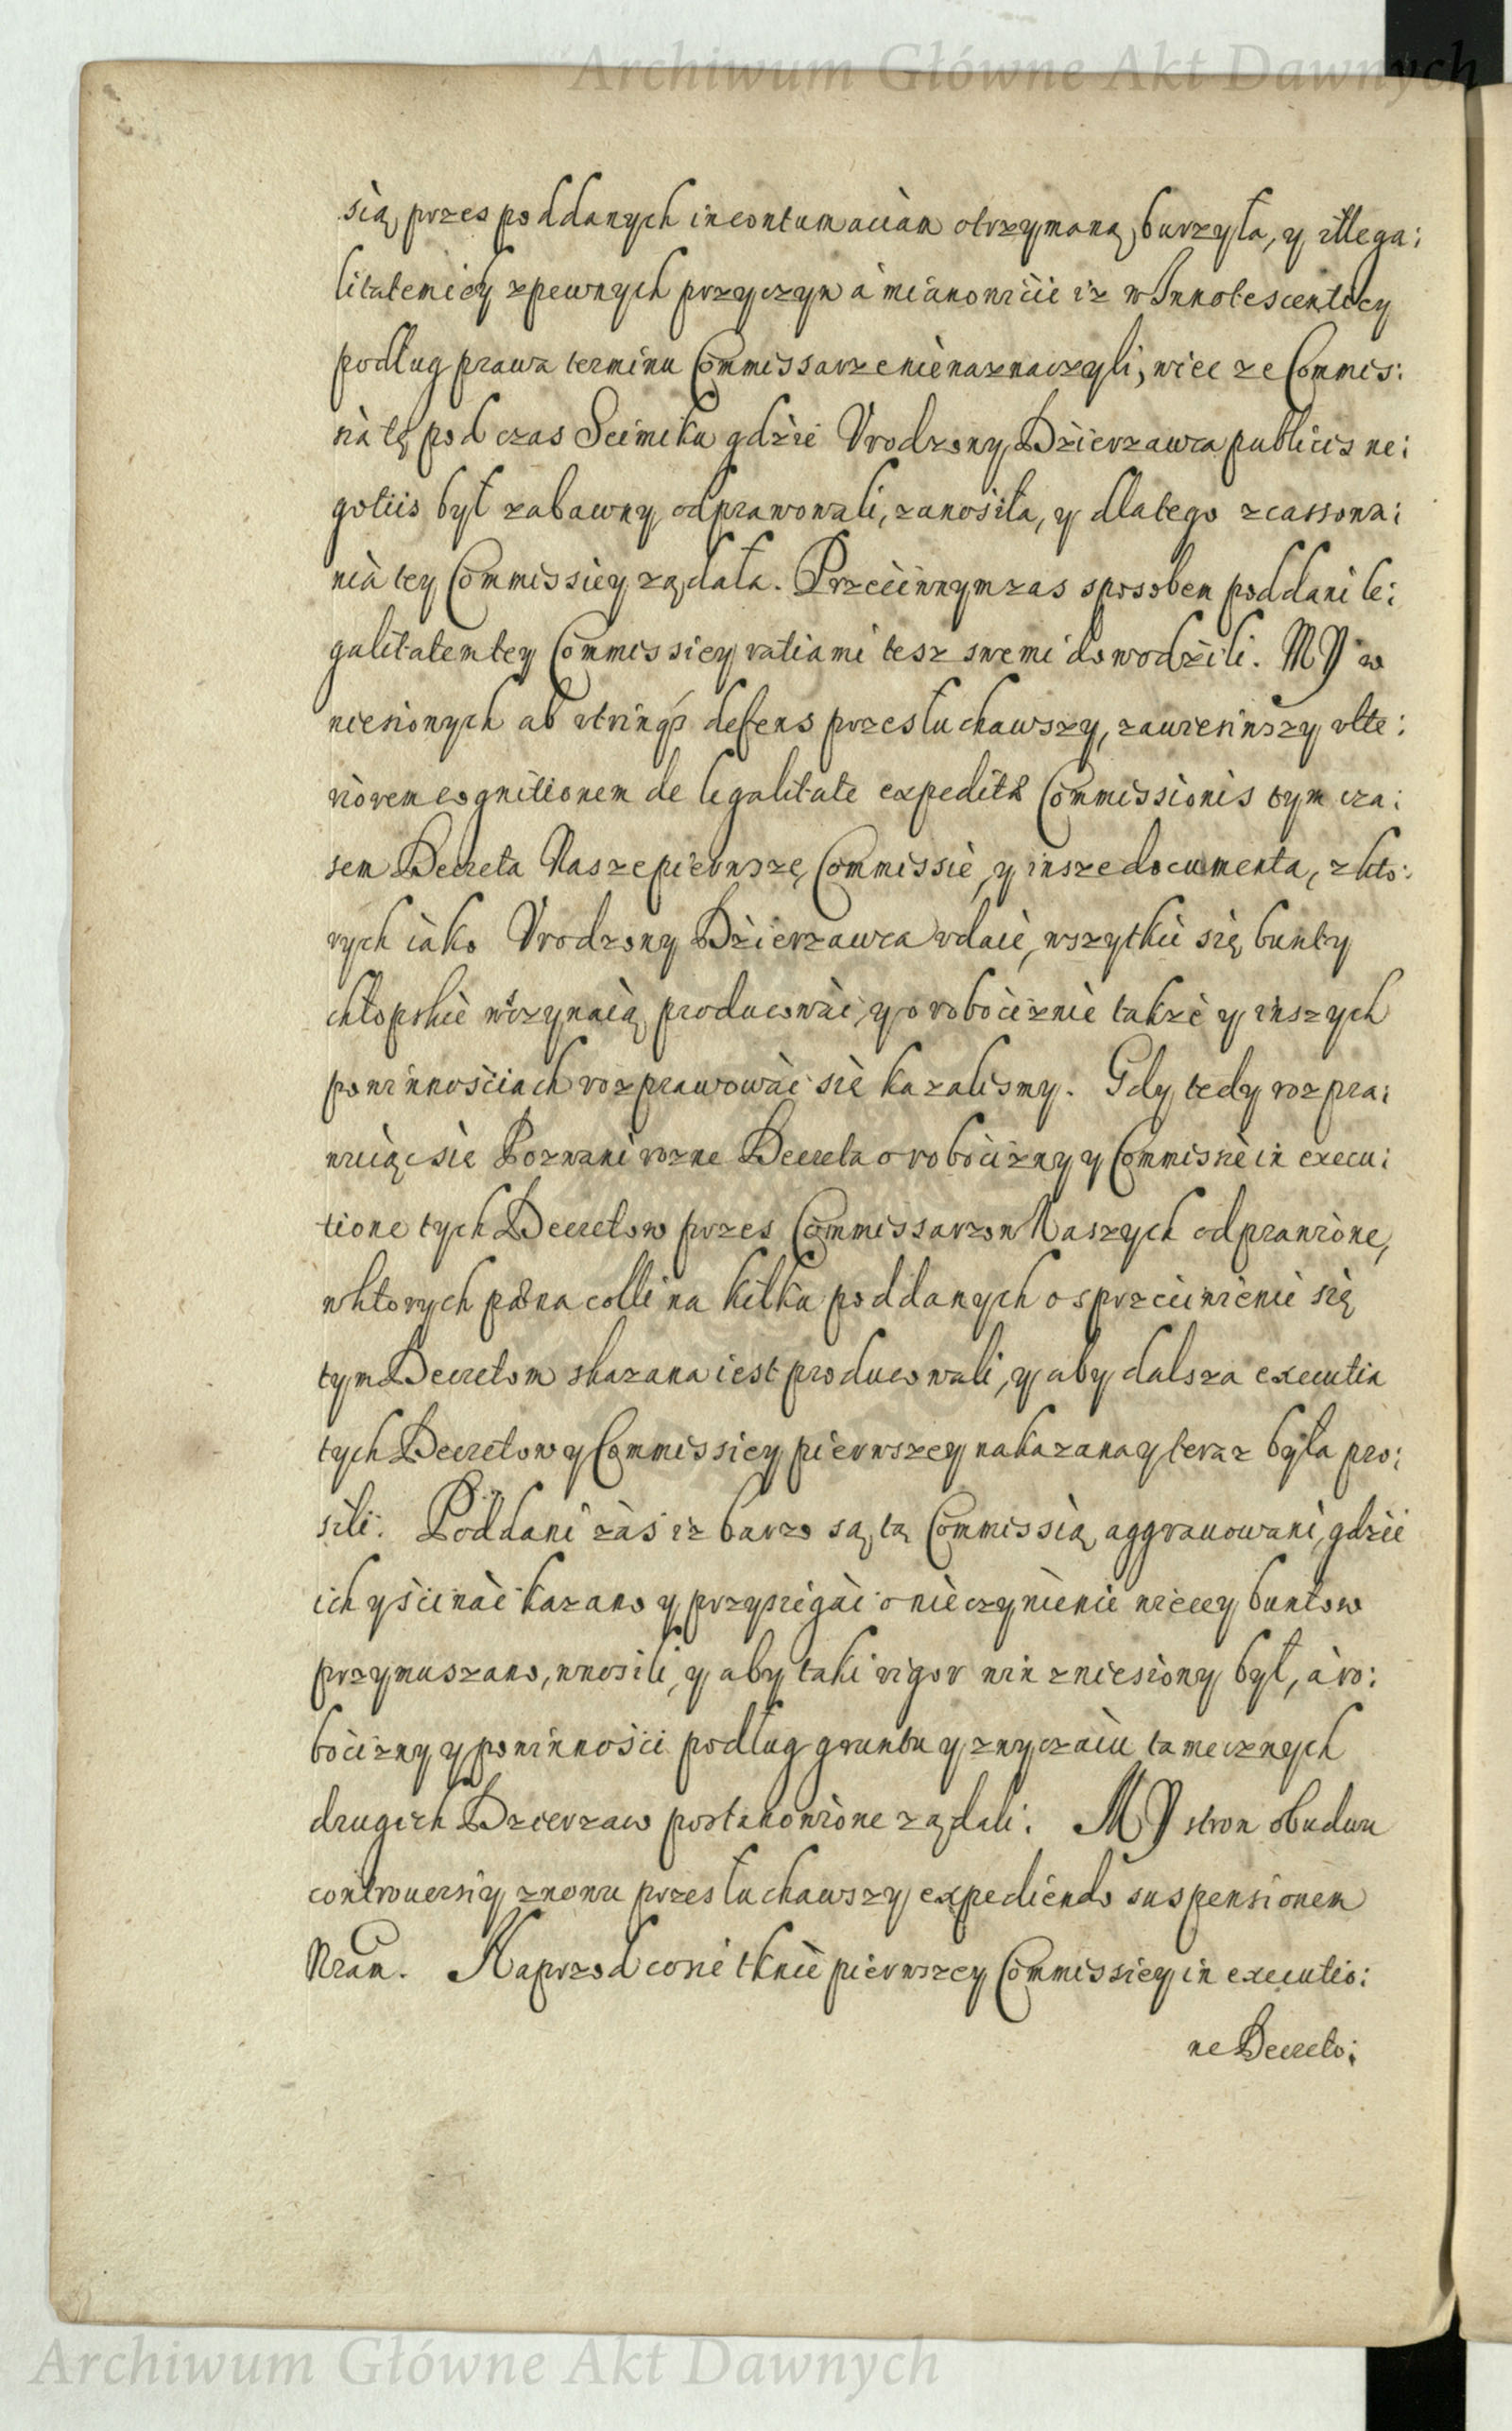 Archiwum Główne Akt Dawnych
sią przes poddanych in contumaciam otrzymaną burzyła, y illega:
litatem iey z pewnych przyczyn a mianowicie iz w Innotescentiey
podług prawa terminu Commissarze nie naznaczyli, wiec ze Commis:
sią tę pod czas Seimiku gdzie Vrodzony Dzierzawca publicis ne:
gotiis był zabawny odprawowali, zanosiła, y dlatego zcassowa:
nia tey Commissiey ządała. Przeciwnym zas sposobem poddani le:
galitatem tey Commissiey ratiami tesz swemi dowodzili. MY w
niesionych ab vtrinq defens przesłuchawszy, zawiesiwszy vlte:
riorem cognitionem de legalitate expeditæ Commissionis tym cza:
sem Decreta Nasze pierwsze, Commissie, y insze documenta, z kto:
rych iako Vrodzony Dzierzawca vdaie, wszytkie się bunty
chłopskie wszynaią producować, y o robociznie takze y inszych
powinnosciach rozprawować sie kazalismy. Gdy tedy rozpra:
wuiąc sie Pozwani rozne Decreta o robocizny y Commissie in execu:
tione tych Decretow przes Commissarzow Naszych odprawione,
w ktorych pæna colli na kilku poddanych o sprzeciwienie się
tym Decretom skazana iest producowali, y aby dalsza executia
tych Decretow y Commissiey pierwszey nakazana y teraz była pro:
sili. Poddani zas iz barzo są tą Commissią aggrauowani, gdzie
ich y scinać kazano y przysięgać o nieczynienie wiecey buntow
przymuszano, wnosili, y aby taki rigor nin zniesiony był, a ro:
bocizny y powinnosci podług gruntu y zwyczaiu tamecznych
drugich Dzierzaw postanowione ządali. MY stron obudwu
controuersiy znowu przesłuchawszy expediendo suspensionem
Nram. Naprzod co sie tknie pierwszey Commissiey in executio:
ne Decreto:
Archiwum Główne Akt Dawnych